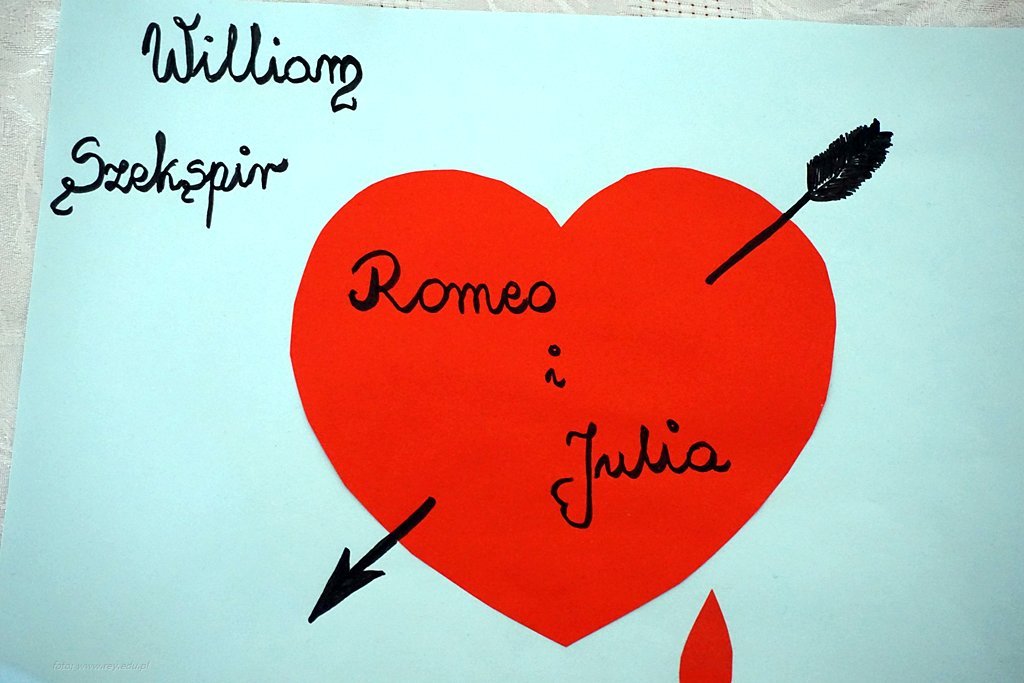 William
Szekspir
Romeo
i
Julia
foto: www.rey.edu.pl